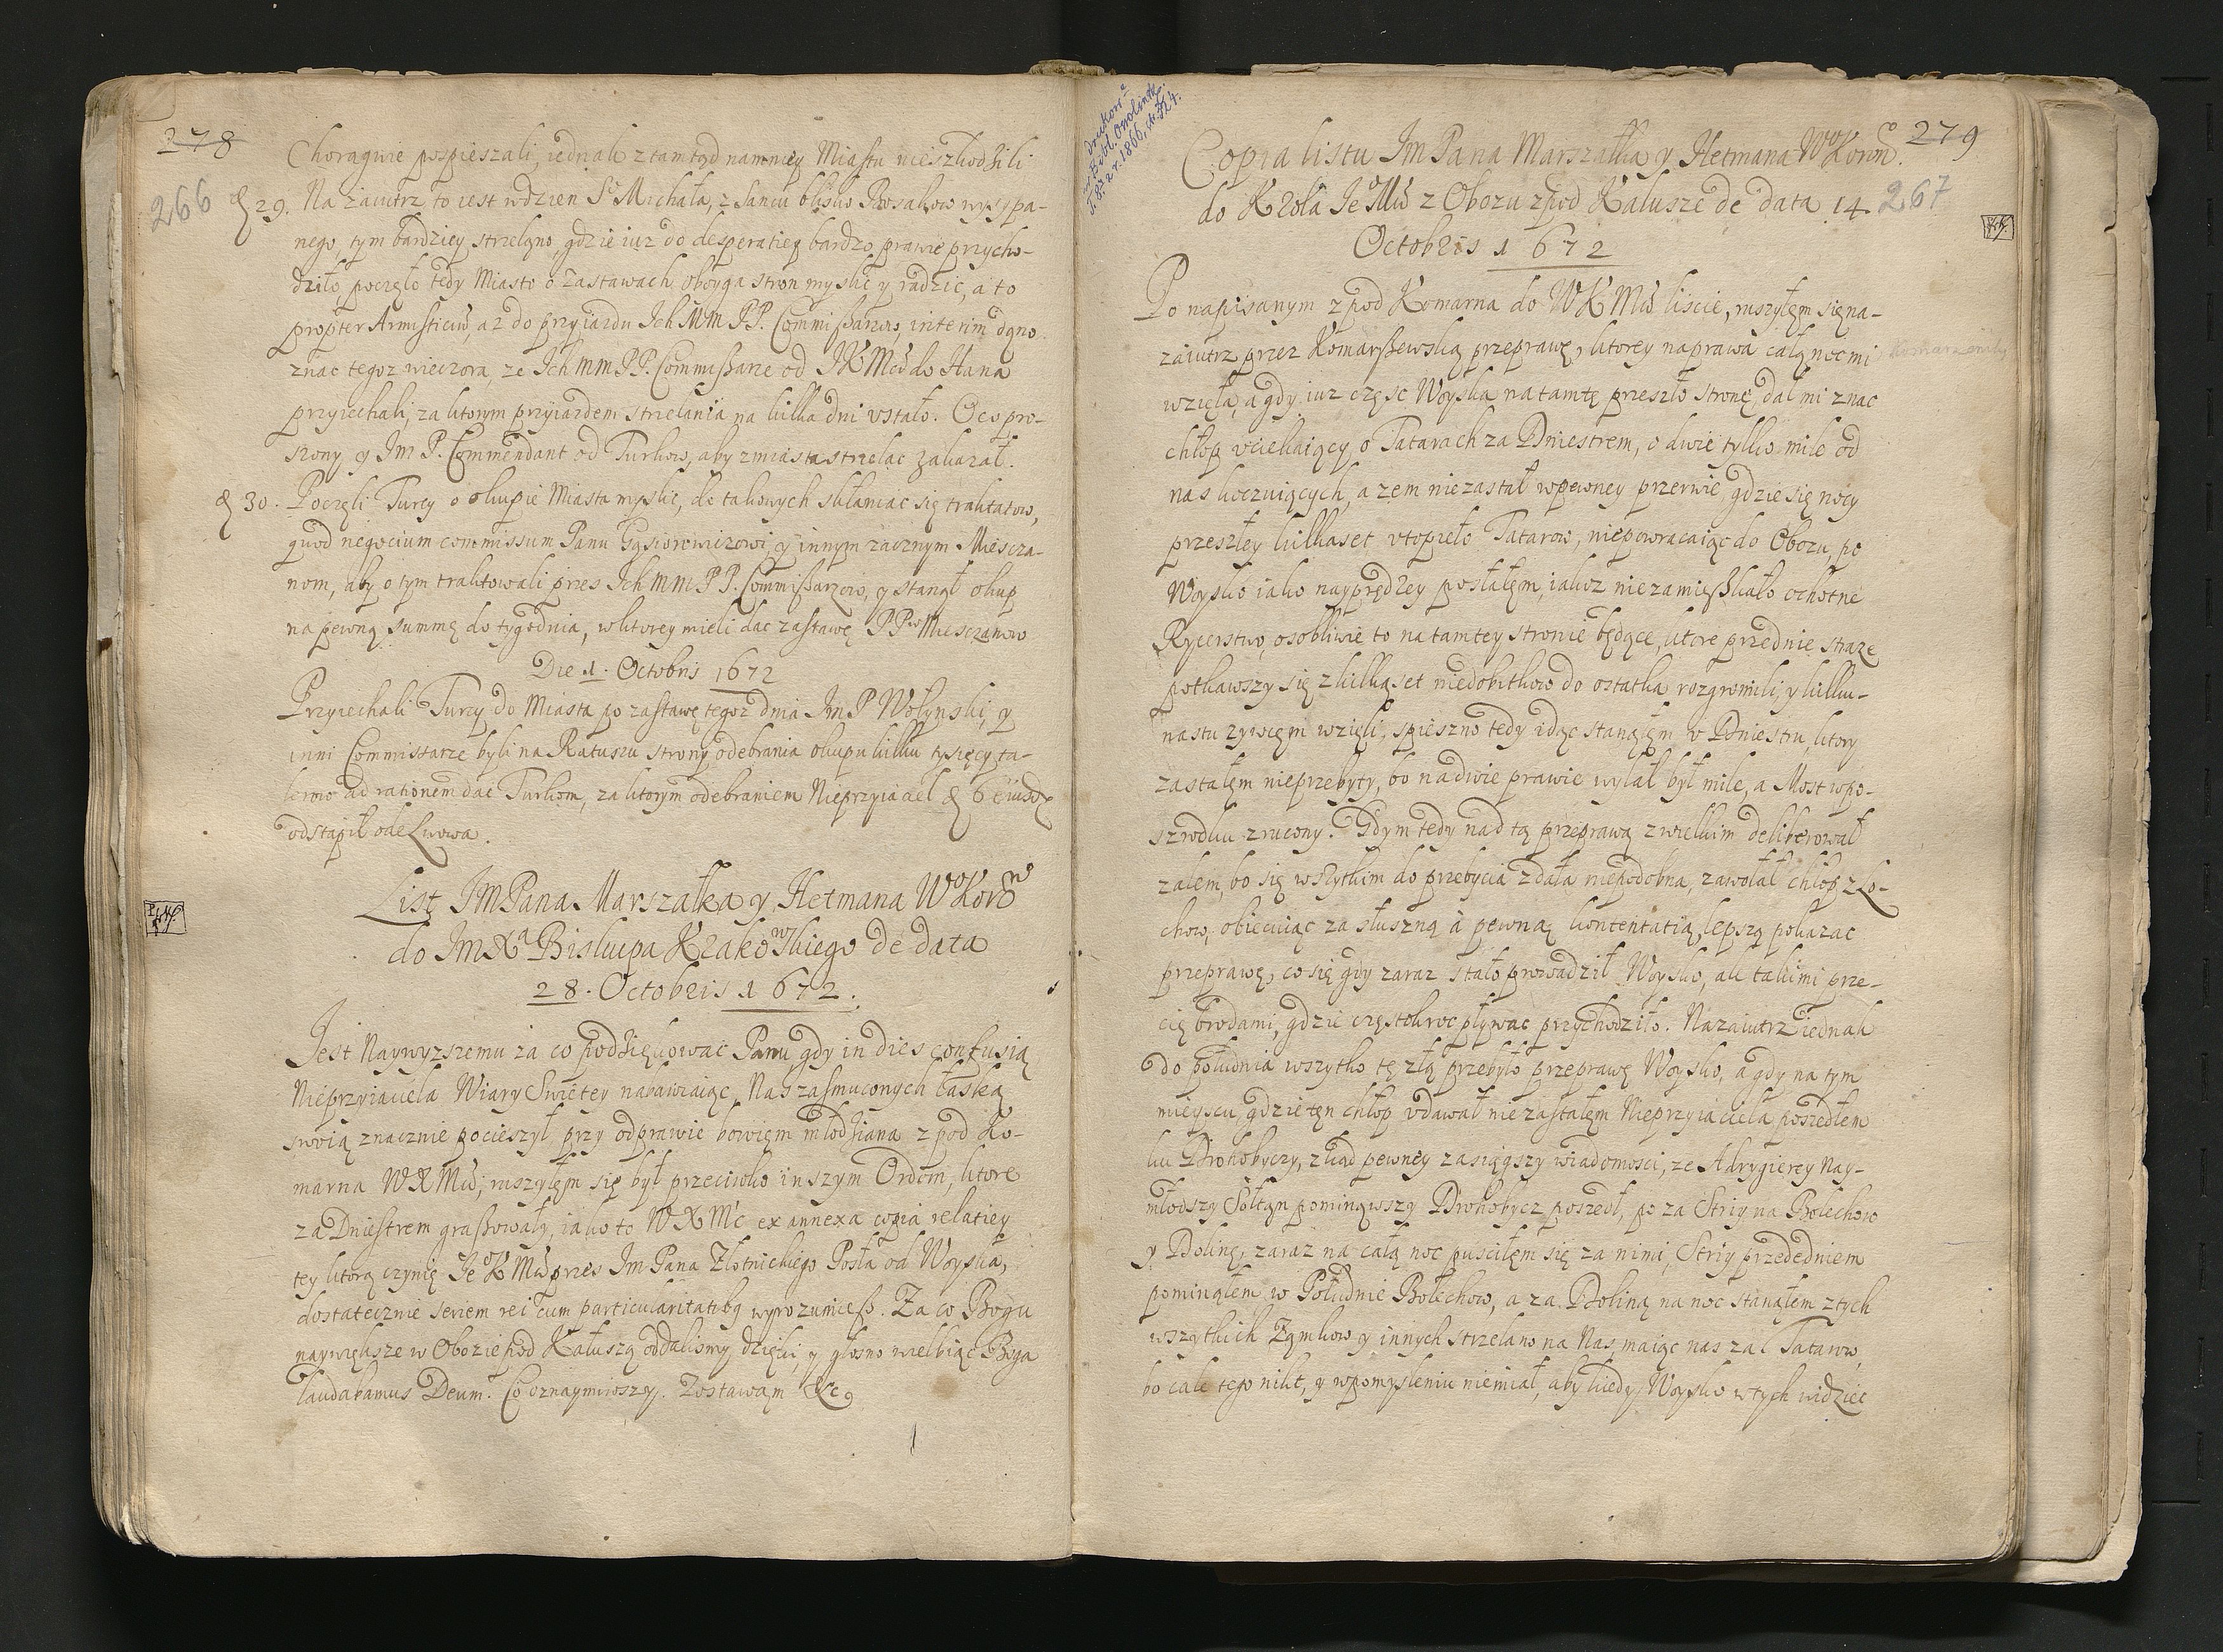 278
266
Chorągwie pospieszali, iednak ztamtąd namniey Miastu nieszkodzili
d 29. Na zaiutrz to iest wdzien S. Michała, z Sancu blisko Bosakow wysypa-
nego, tym bardziey strzelano, gdzie iuz do desperatiey bardzo prawie przycho-
dziło, poczęło tedy Miasto o zastawach oboyga stron myslic y radzic, a to
propter Armisticiu, az do przyiazdu Ich MM PP. Commissarzow, interim dano
znac tegoz wieczora, ze Ich MM PP. Commissarze od JKMci do Hana
przyiechali, za ktorym przyiazdem strzelania na kilka dni ustało. Oco pro-
szony y Im P. Commendant od Turkow, aby zmiasta strzelac zakazał.
d 30. Poczęli Turcy o okupie Miasta myslic, do takowych skłaniac się traktatow,
quod negocium commissum Panu Gąsiorowiczowi, y innym zacznym Miescza-
nom, aby o tym traktowali przes Ich MM PP. Commissarzow, y stanął okup
na pewną summę do tygodnia, wktorey mieli dac zastawę PP. Miesczanow
Die 1. Octobris 1672
Przyiechali Turcy do Miasta po zastawę tegoz dnia Im P Wołynski, y
inni Commissarze byli na Ratuszu strony odebrania okupu kilku tysięcy ta-
lerow ad rationem dac Turkom, za ktorym odebraniem Nieprzyiaciel d 6 eiusd
odstąpił ode Lwowa.
List JMPana Marszałka y Hetmana WoKor
do JmXa Biskupa Krakowskiego de data
28. Octobris 1672.
Jest Naywyzszemu za co podziękowac Panu gdy in dies confusią
Nieprzyiaciela Wiary Swiętey nabawiaiąc Nas zasmuconych łaską
swoią znacznie pocieszył przy odprawie bowiem młodziana z pod Ko-
marna WXMci, ruszyłem się był przeciwko inszym Ordom, ktore
za Dniestrem grassowały, iako to WXMc ex annexa copia relatiey
tey ktorą czynię Je KMci przes Im Pana Złotnickiego Posła od Woyska,
dostatecznie seriem rei cum particularitatibq wyrozumiesz. Za co Bogu
naywiększe w Obozie pod Kałuszą oddaliśmy dzięki, y głosno wielbiąc Boga
laudabamus Deum. Co oznaymiwszy. Zostawam &c
drukow.
w Bibl. Ossolińsk.
T. 8. z r. 1866, str. 324.
279
267
Copia listu Im Pana Marszałka y Hetmana WoKoron.
do Krola Je Mci z Obozu zpod Kałusze de data 14.
Octobris 1672
Po napisanym z pod Komarna do WKMci liscie, ruszyłem się na-
zaiutrz przez Komarszewską przeprawę, ktorey naprawa całą noc mi
wzięła, a gdy iuz częsc Woyska na tamtę przeszło stronę, dał mi znac
chłop uciekaiący o Tatarach za Dniestrem, o dwie tylko mile od
nas koczuiących, a zem nie zastał w pewney przerwie, gdzie się nocy
przeszłey kilkaset utopieło Tatarow, niepowracaiąc do Obozu, po
Woysko iako nayprędzey posłałem, iakoz niezamieszkało ochotne
Rycerstwo, osobliwie to na tamtey stronie będące, ktore przednie straze
potkawszy się z kilkąset niedobitkow do ostatka rozgromili, y kilku-
nastu zywcem wzięli, spieszno tedy idąc stanąłem u Dniestru, ktory
zastałem nieprzebyty, bo na dwie prawie wylał był mile, a Most wpo-
szrodku zrucony. Gdym tedy nad tą przeprawą z wielkim deliberował
zalem, bo się wszytkim do przebycia zdała niepodobna, zawołał chłop z Ło-
chow, obiecuiąc za słuszną a pewną kontentatią, lepszą pokazac
przeprawę, co się gdy zaraz stało prowadził Woysko, ale takimi prze-
cię brodami, gdzie częstokroc pływac przychodziło. Nazaiutrz iednak
do południa wszytko tę złą przebyło przeprawę Woysko, a gdy na tym
mieyscu gdzie ten chłop udawał nie zastałem Nieprzyiaciela poszedłem
ku Drohobyczy, zkąd pewney zasiągszy wiadomosci, ze Adzygierey nay-
młodszy Sołtan pominąwszy Drohobycz poszedł, po za Striy na Bolechow
y Dolinę, zaraz na całą noc puściłem się za nimi, Striy przededniem
pominąłem w Południe Bolechow, a za Doliną na noc stanąłem z tych
wszytkich Zamkow y innych strzelano na Nas, maiąc nas za Tatarow,
bo cale tego nikt, y wpomysleniu niemiał, aby kiedy Woysko w tych widziec